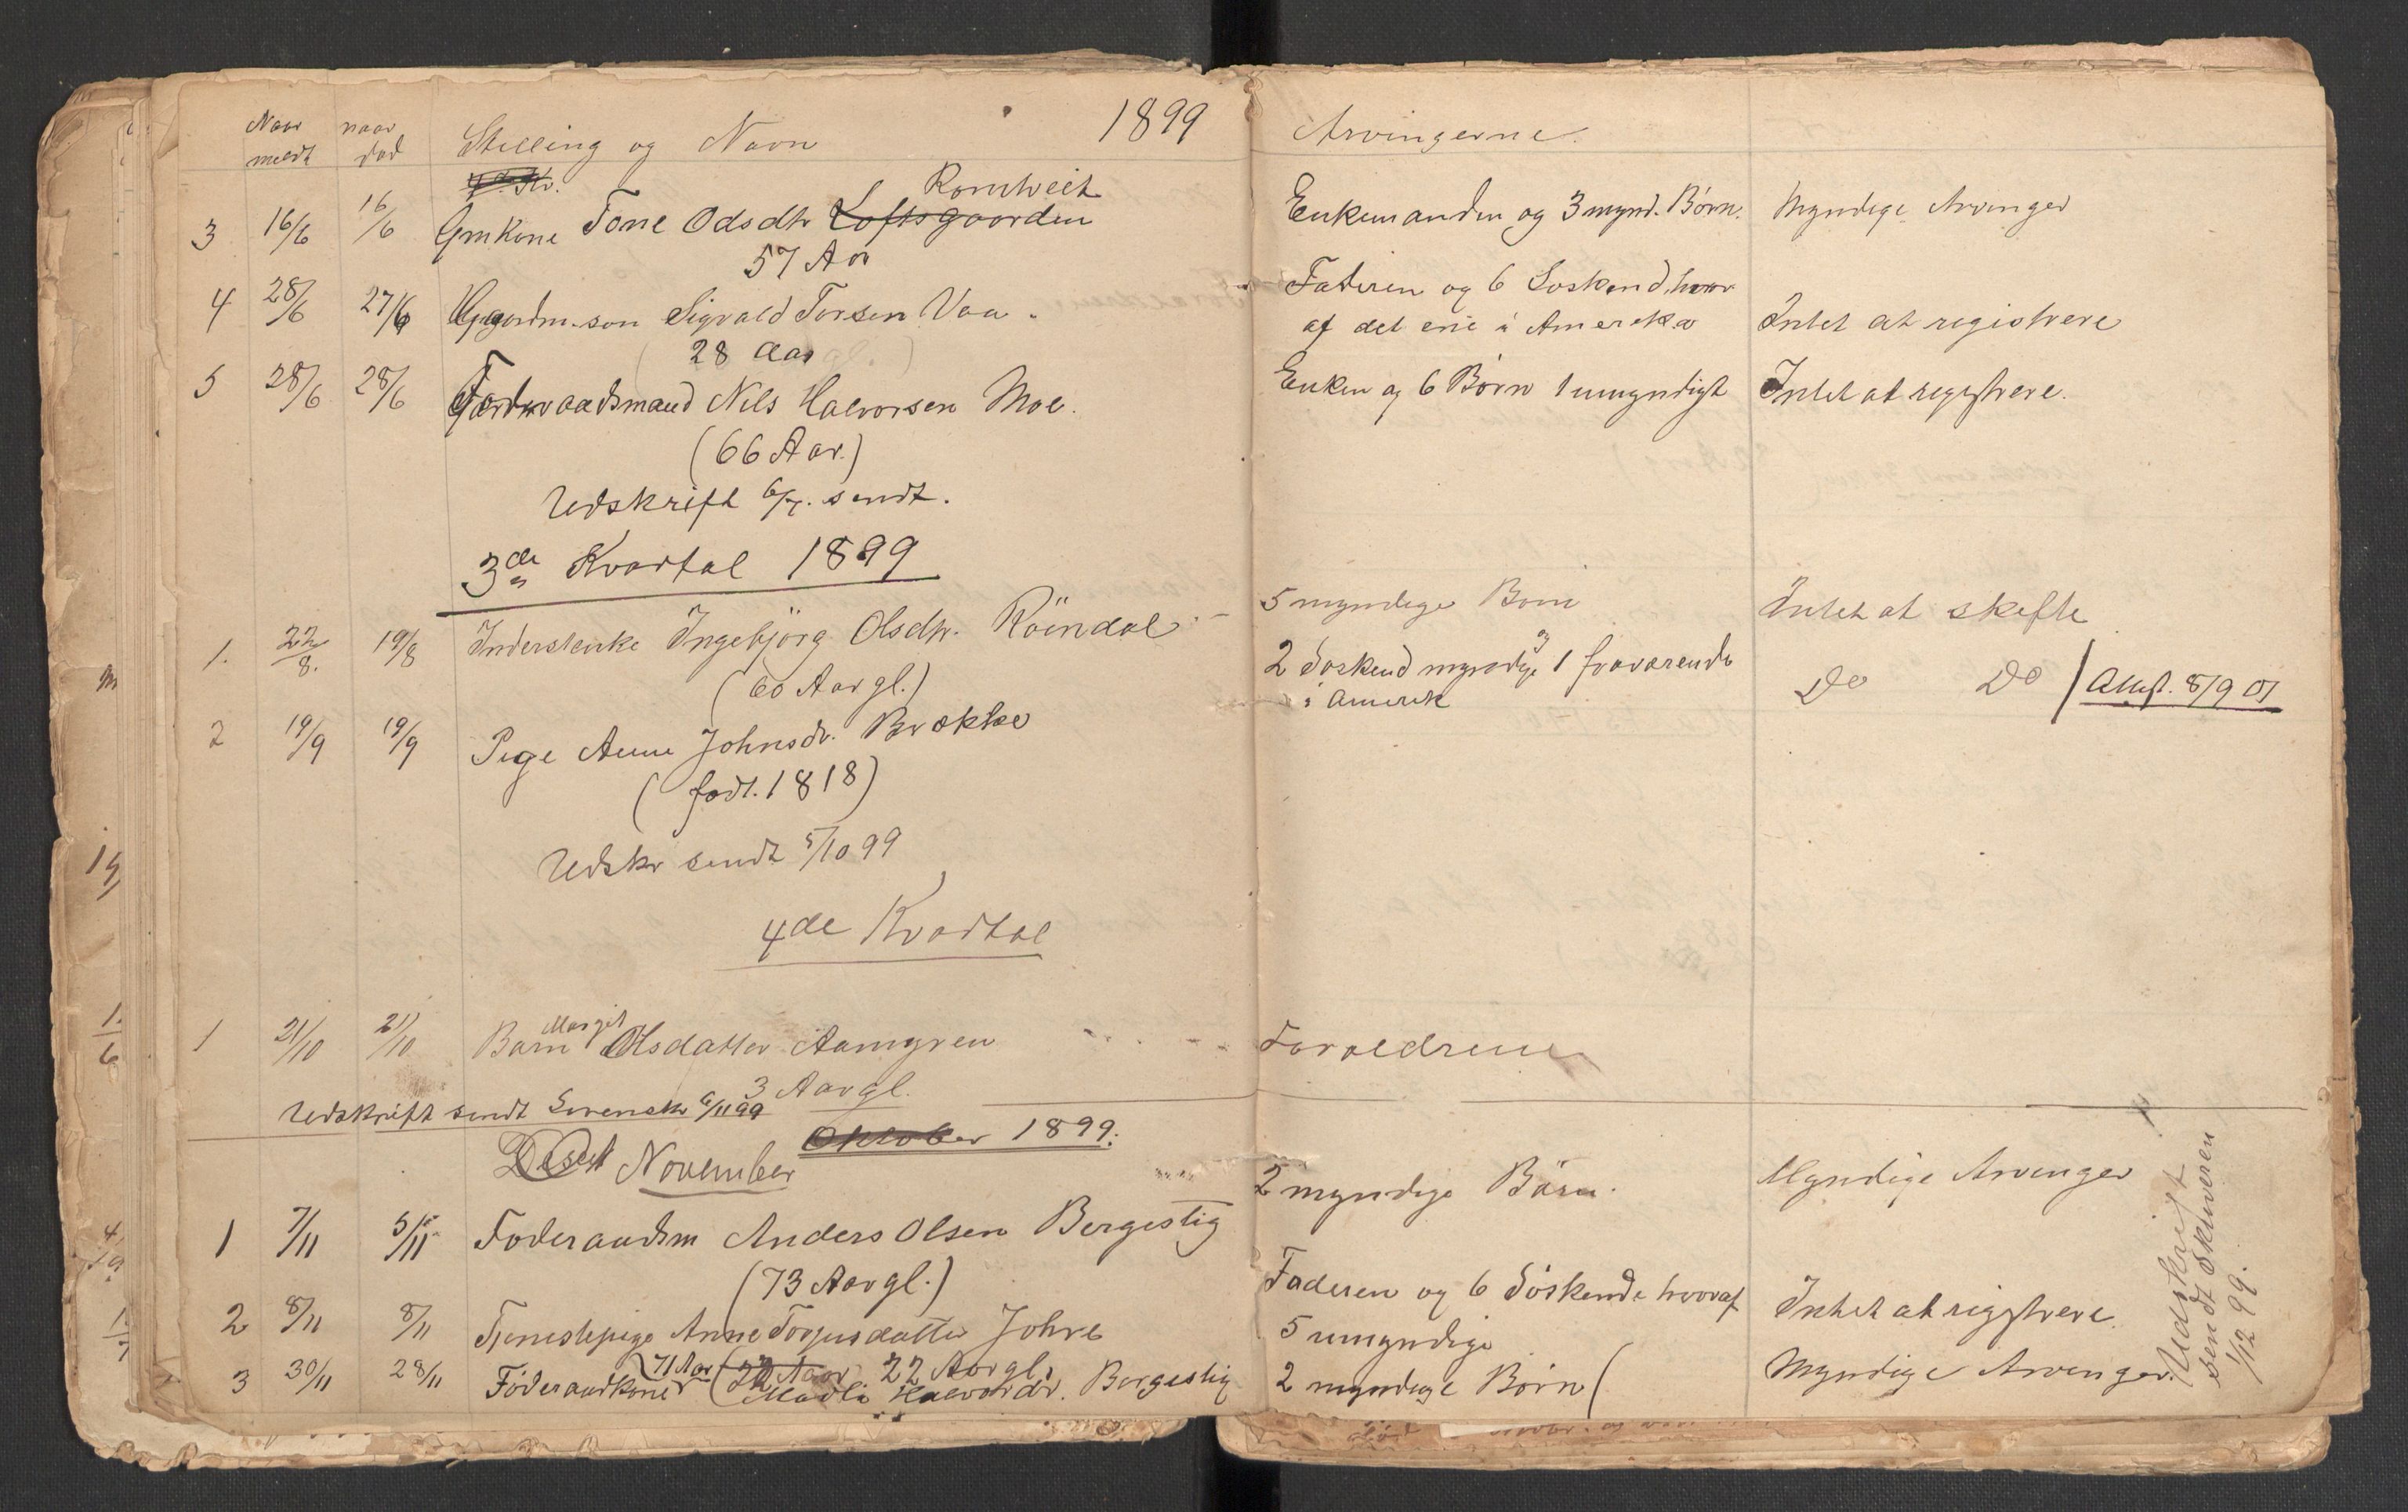 1899
Naar meldt
naar død
Stilling og Navn
3 16/6 16/6 Gmkone Tone Odsdtr Loftsgaarden
57 Aar
4 28/6 27/6 Sigvald Torsen Vaa.
28 Aar
5 28/6 28/6 Føderaadsmand Nils Halvorsen Moe.
(66 Aar.)
Udskrift 6/7. sendt.
3de Kvartal 1899
1. 22/8. 19/8 Inderstenke Ingebjörg Olsdtr. Röindal
(60 Aar gl.)
2 19/9 19/9 Pige Anne Johnsdr. Brække
(født. 1818)
Udskr sendt 5/10 99
4de Kvartal
1 21/10 21/10 Barn Margit Olsdatter Aamgren
3 Aar gl.
Udskrift sendt 6/11 99
Oktober 1899.
November
1 7/11 5/11 Føderaadsm Anders Olsen Bergestig
(73 Aar gl.)
2 8/11 8/11 Tjenestepige Anne Torjusdatter Johre
22 Aar gl.
3 30/11 28/11 Føderaadkone 71 Aar Halvordr. Bergestig
Arvingerne.
Enkemanden og 3 mynd. Børn. Myndige Arvinger
Faderen og 6 Søskend, hvor
af det ene i Amerika Intet at registrere
Enken og 6 Børn 1 umyndigt Intet at registrere.
5 myndige Børn Intet at skifte
2 Søskend myndige 1 fraværende
i Amerik Do Do / Attest. 8/9 01
Forældrene
2 myndige Börn. Myndige Arvinger
Faderen og 6 Söskende hvoraf
5 umyndige Intet at registrere.
2 myndige Børn Myndige Arvinger.
Udskrift
sendt Skriveren
1/12 99.